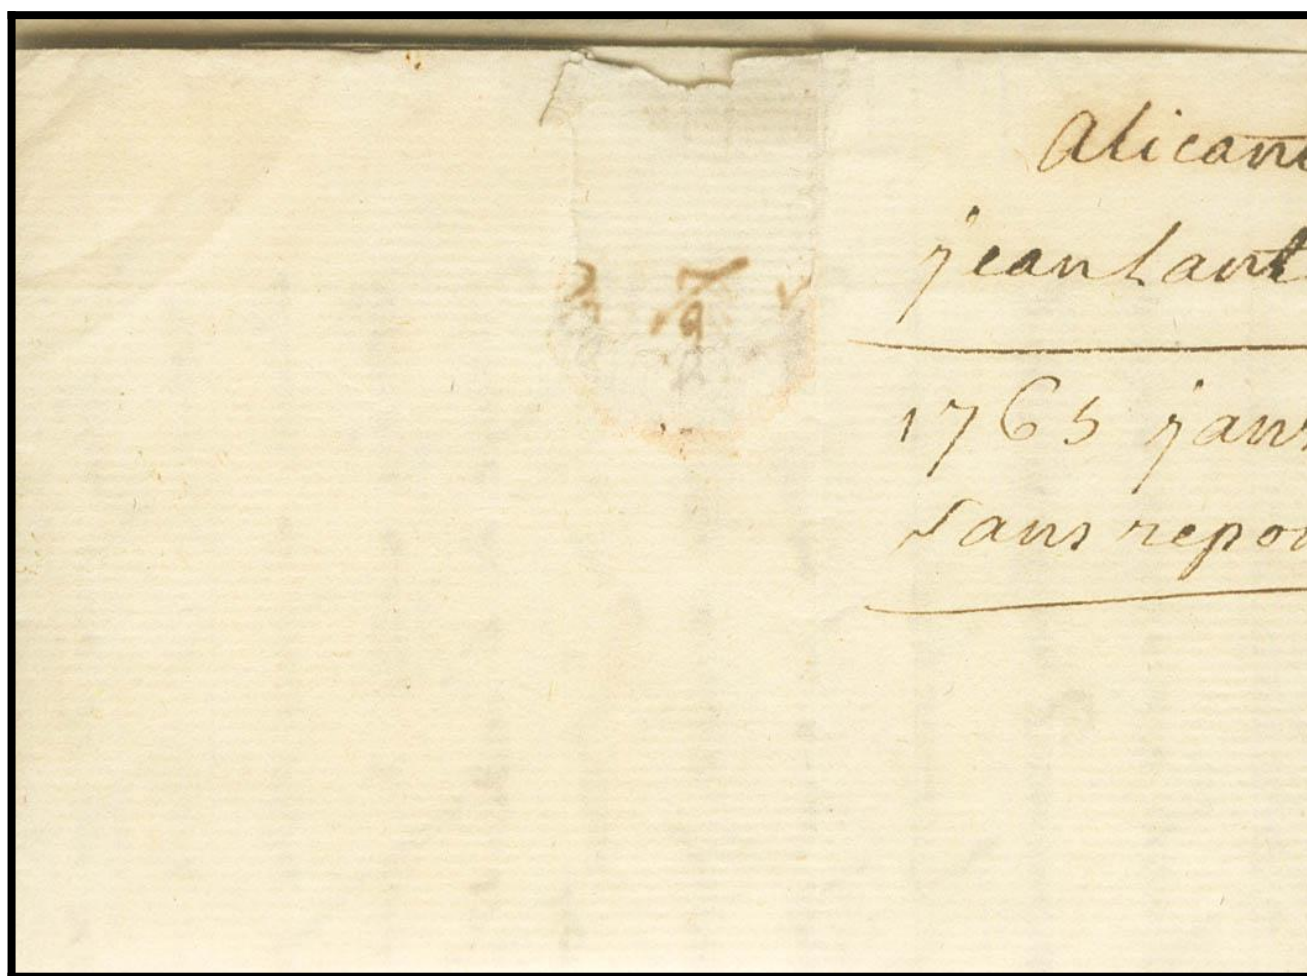 Alicant
jean
1765 janv
sans repon